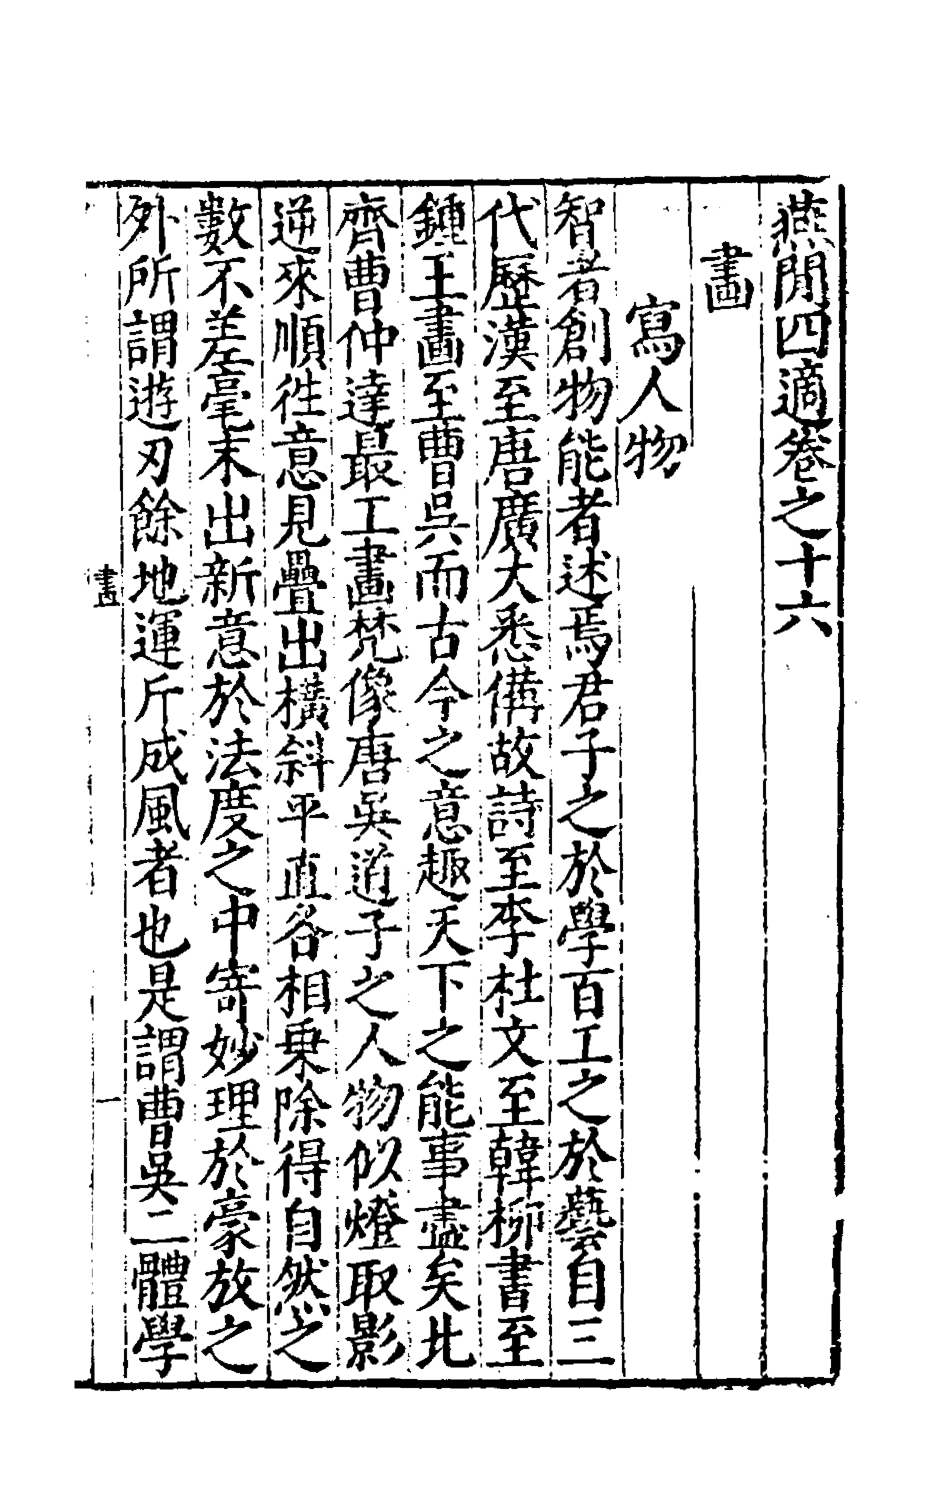 燕閒四適卷之十六
畫
寫人物
智者創物能者述焉君子之於學百工之於藝自三
代歷漢至唐廣大悉備故詩至李杜文至韓柳書至
鍾王畫至曹吳而古今之意趣天下之能事盡矣北
齊曹仲達最工畫梵像唐吳道子之人物似燈取影
逆來順往意見疊出橫斜平直各相乗除得自然之
數不差毫末出新意於法度之中寄妙理於豪放之
外所謂遊刃餘地運斤成風者也是謂曹吳二體學
畫
一